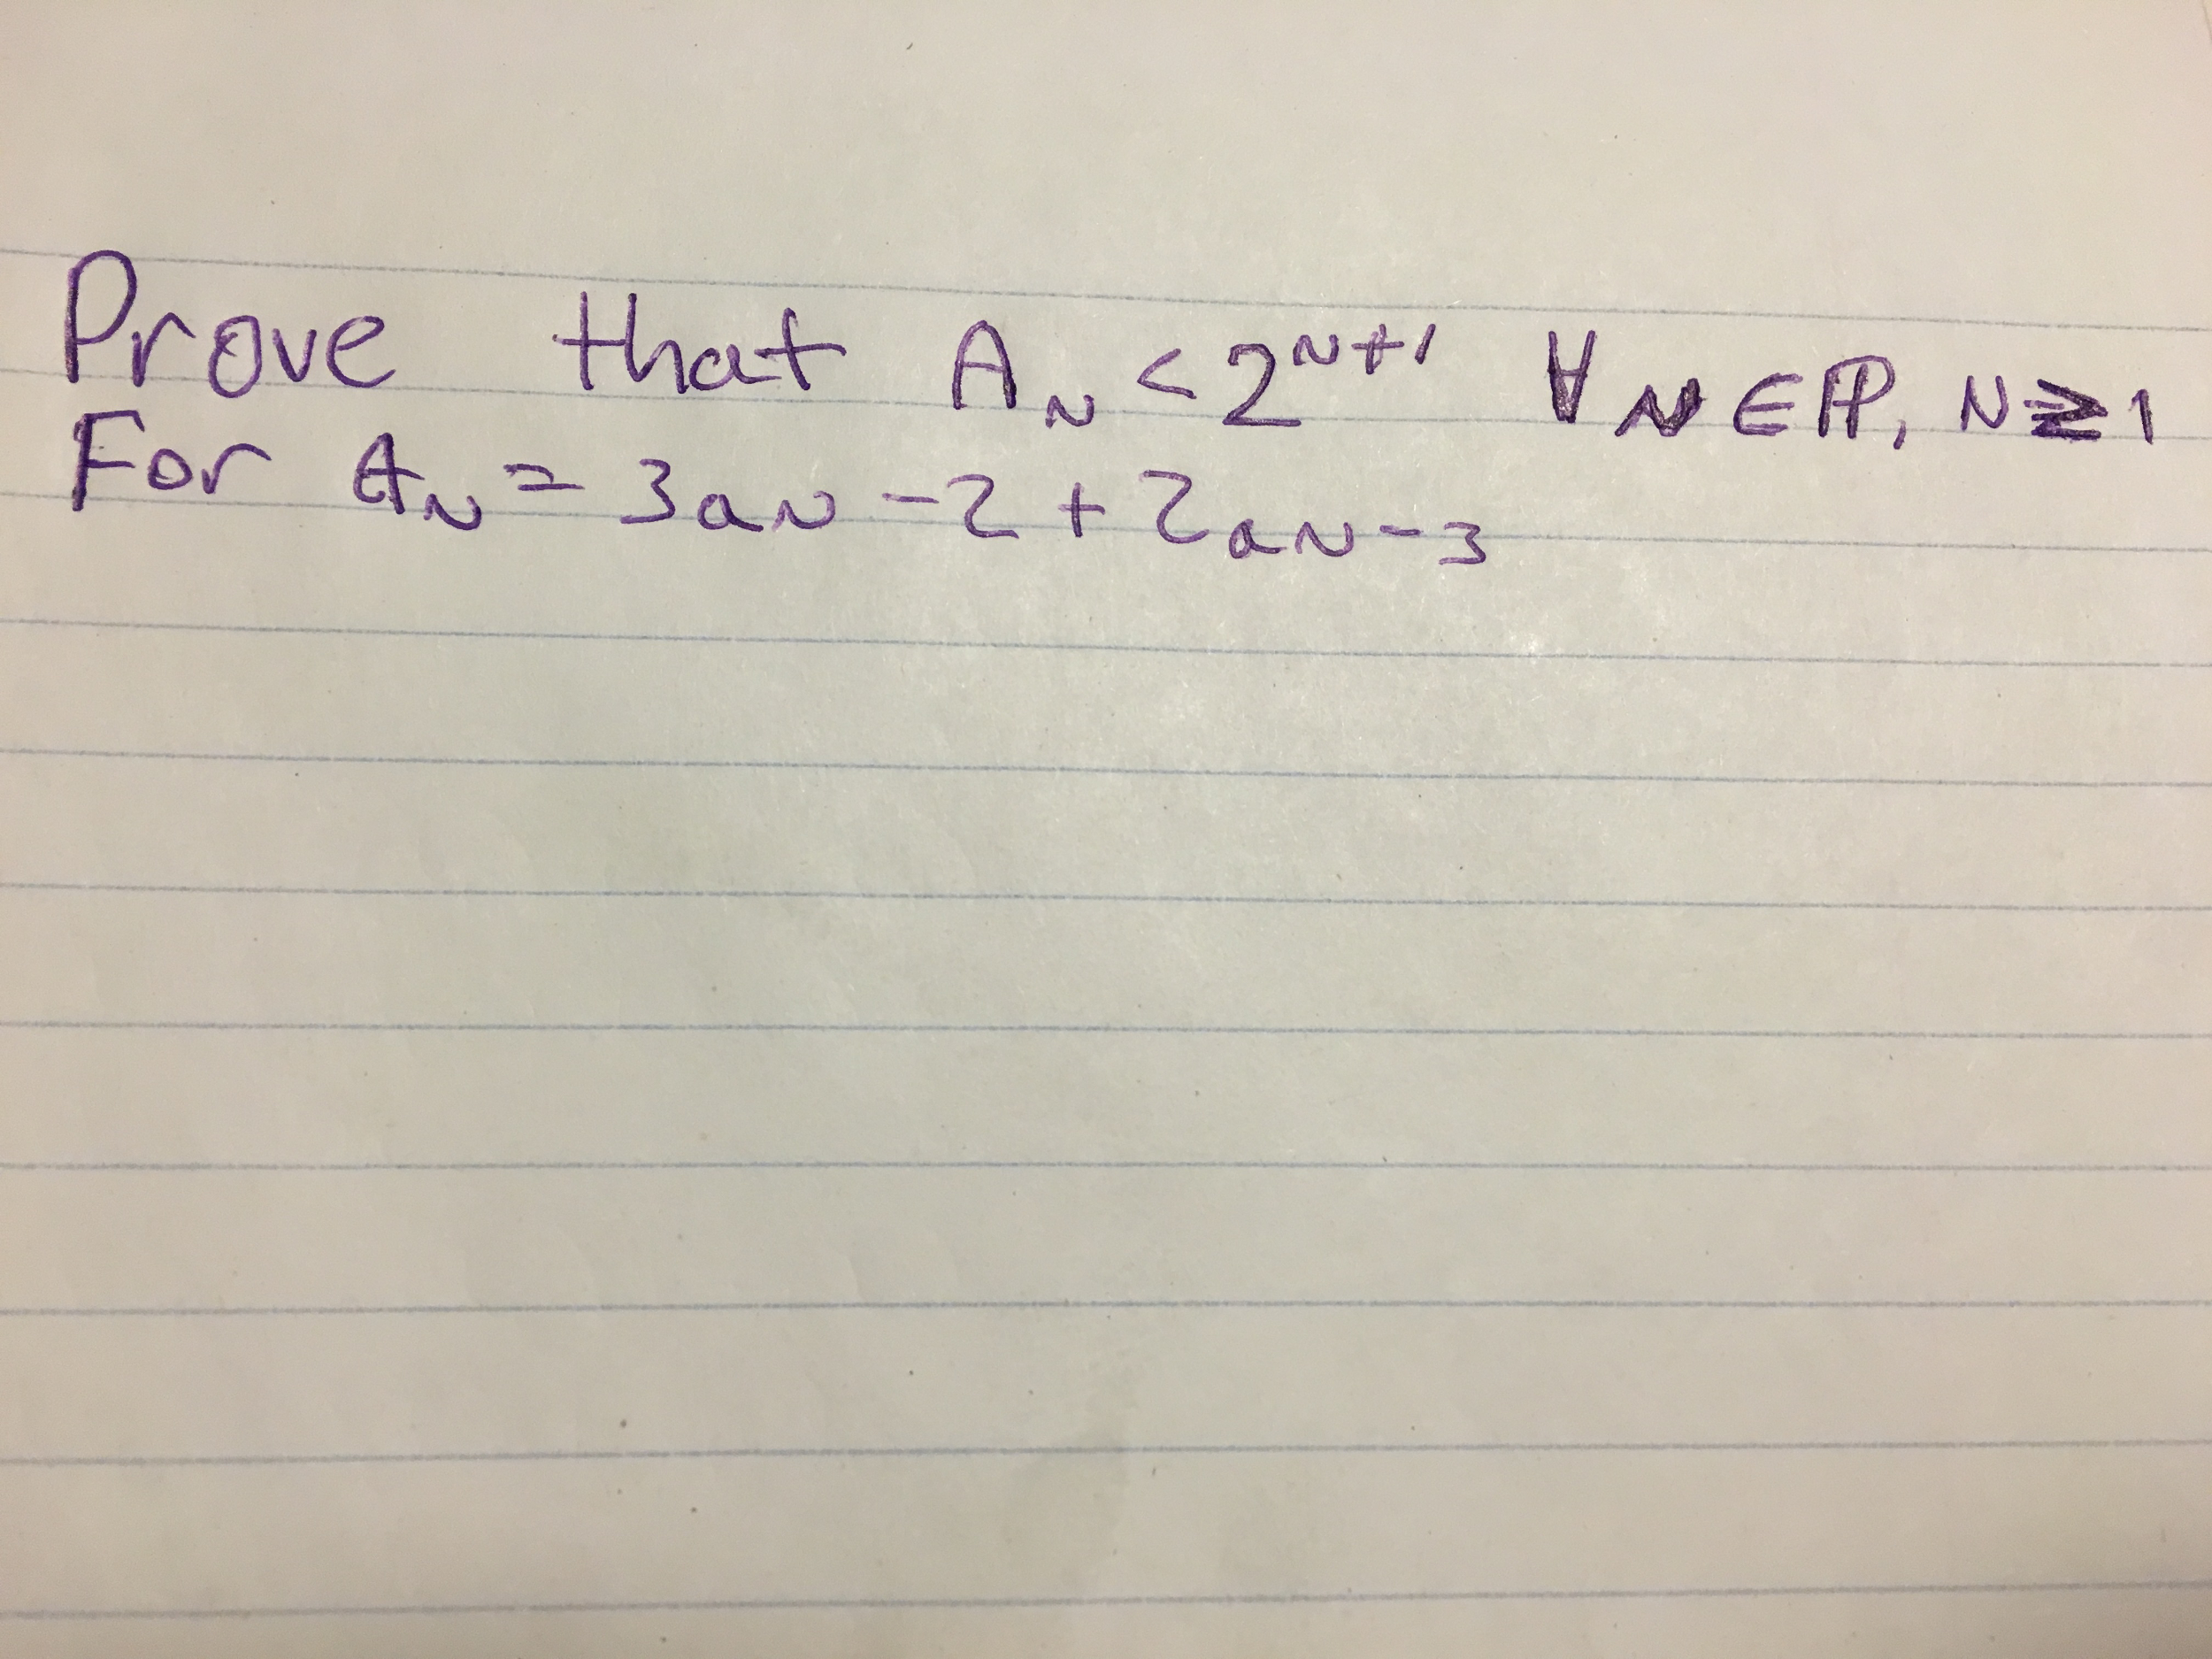 Prove that A_N < 2^{N+1} ∀ N ∈ ℙ, N ≥ 1
For A_N = 3a_N - 2 + 2a_{N-3}